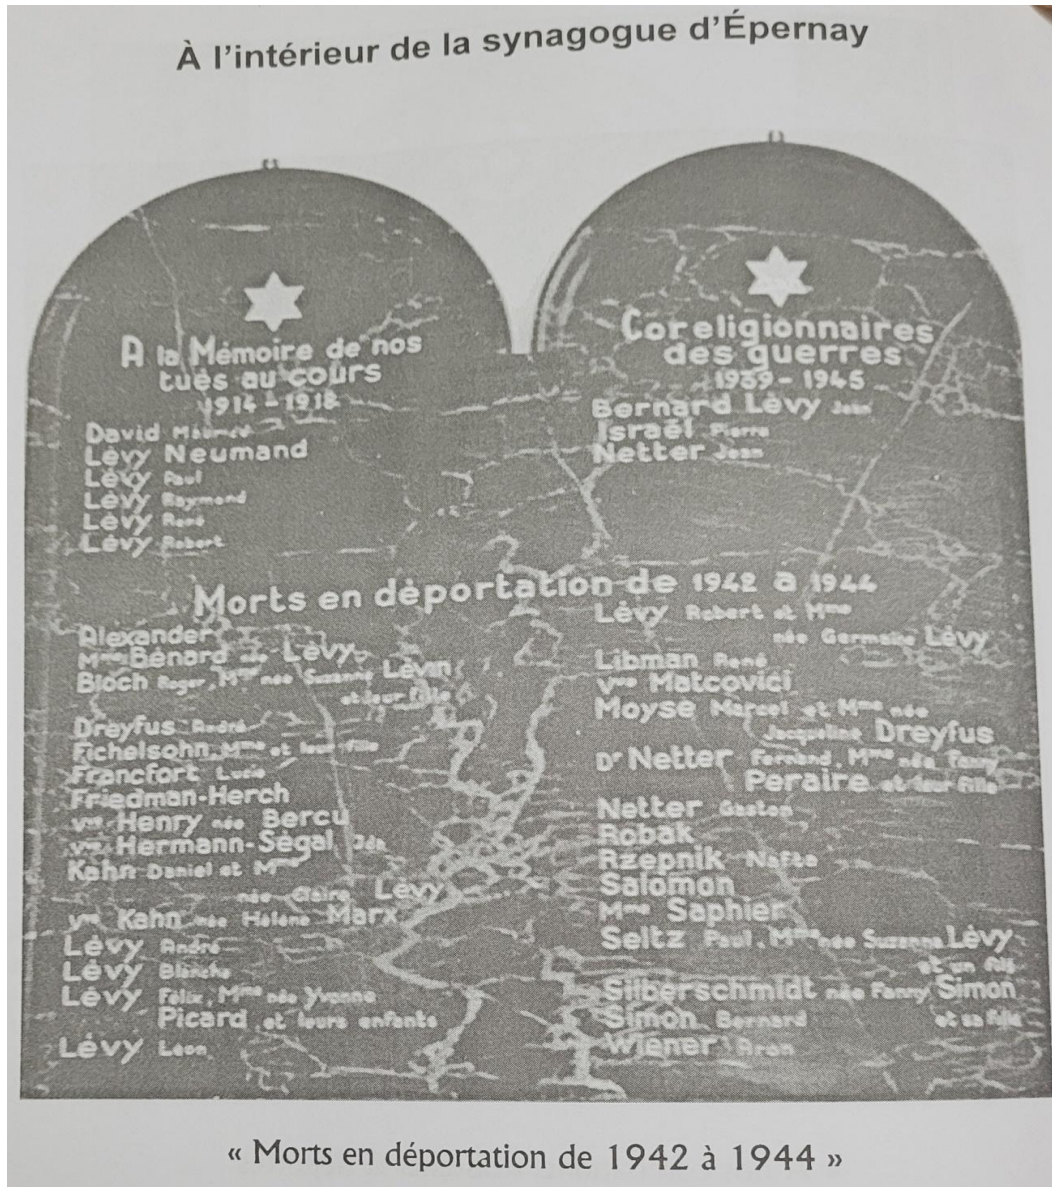 À l'intérieur de la synagogue d'Épernay
A la Mémoire de nos
tués au cours
1914 - 1918
David
Lévy Neumand
Lévy Paul
Lévy Raymond
Lévy René
Lévy Robert
Coreligionnaires
des guerres
1939 - 1945
Bernard Lévy Jean
Israël Pierre
Netter Jean
Morts en déportation de 1942 à 1944
Alexander
Mme Bénard née Lévy
Bloch Roger, Mme née Suzanne Lévy
et leur fille
Dreyfus André
Fichelsohn Mme et leur fille
Francfort Lucie
Friedman-Herch
Vve Henry née Bercu
Vve Hermann-Ségal
Kahn Daniel et Mme
née Claire Lévy
Vve Kahn née Hélène Marx
Lévy André
Lévy Blanche
Lévy Félix, Mme née Yvonne
Picard et leurs enfants
Lévy Léon
Lévy Robert et Mme
née Germaine Lévy
Libman René
Vve Matcovici
Moyse Marcel et Mme née
Jacqueline Dreyfus
Dr Netter Fernand, Mme née Fanny
Peraire et leur fille
Netter Gaston
Robak
Rzepnik Nafta
Salomon
Mme Saphier
Seltz Paul, Mme née Suzanne Lévy
et un fils
Silberschmidt née Fanny Simon
et sa fille
Simon Bernard
Wiener Aron
« Morts en déportation de 1942 à 1944 »